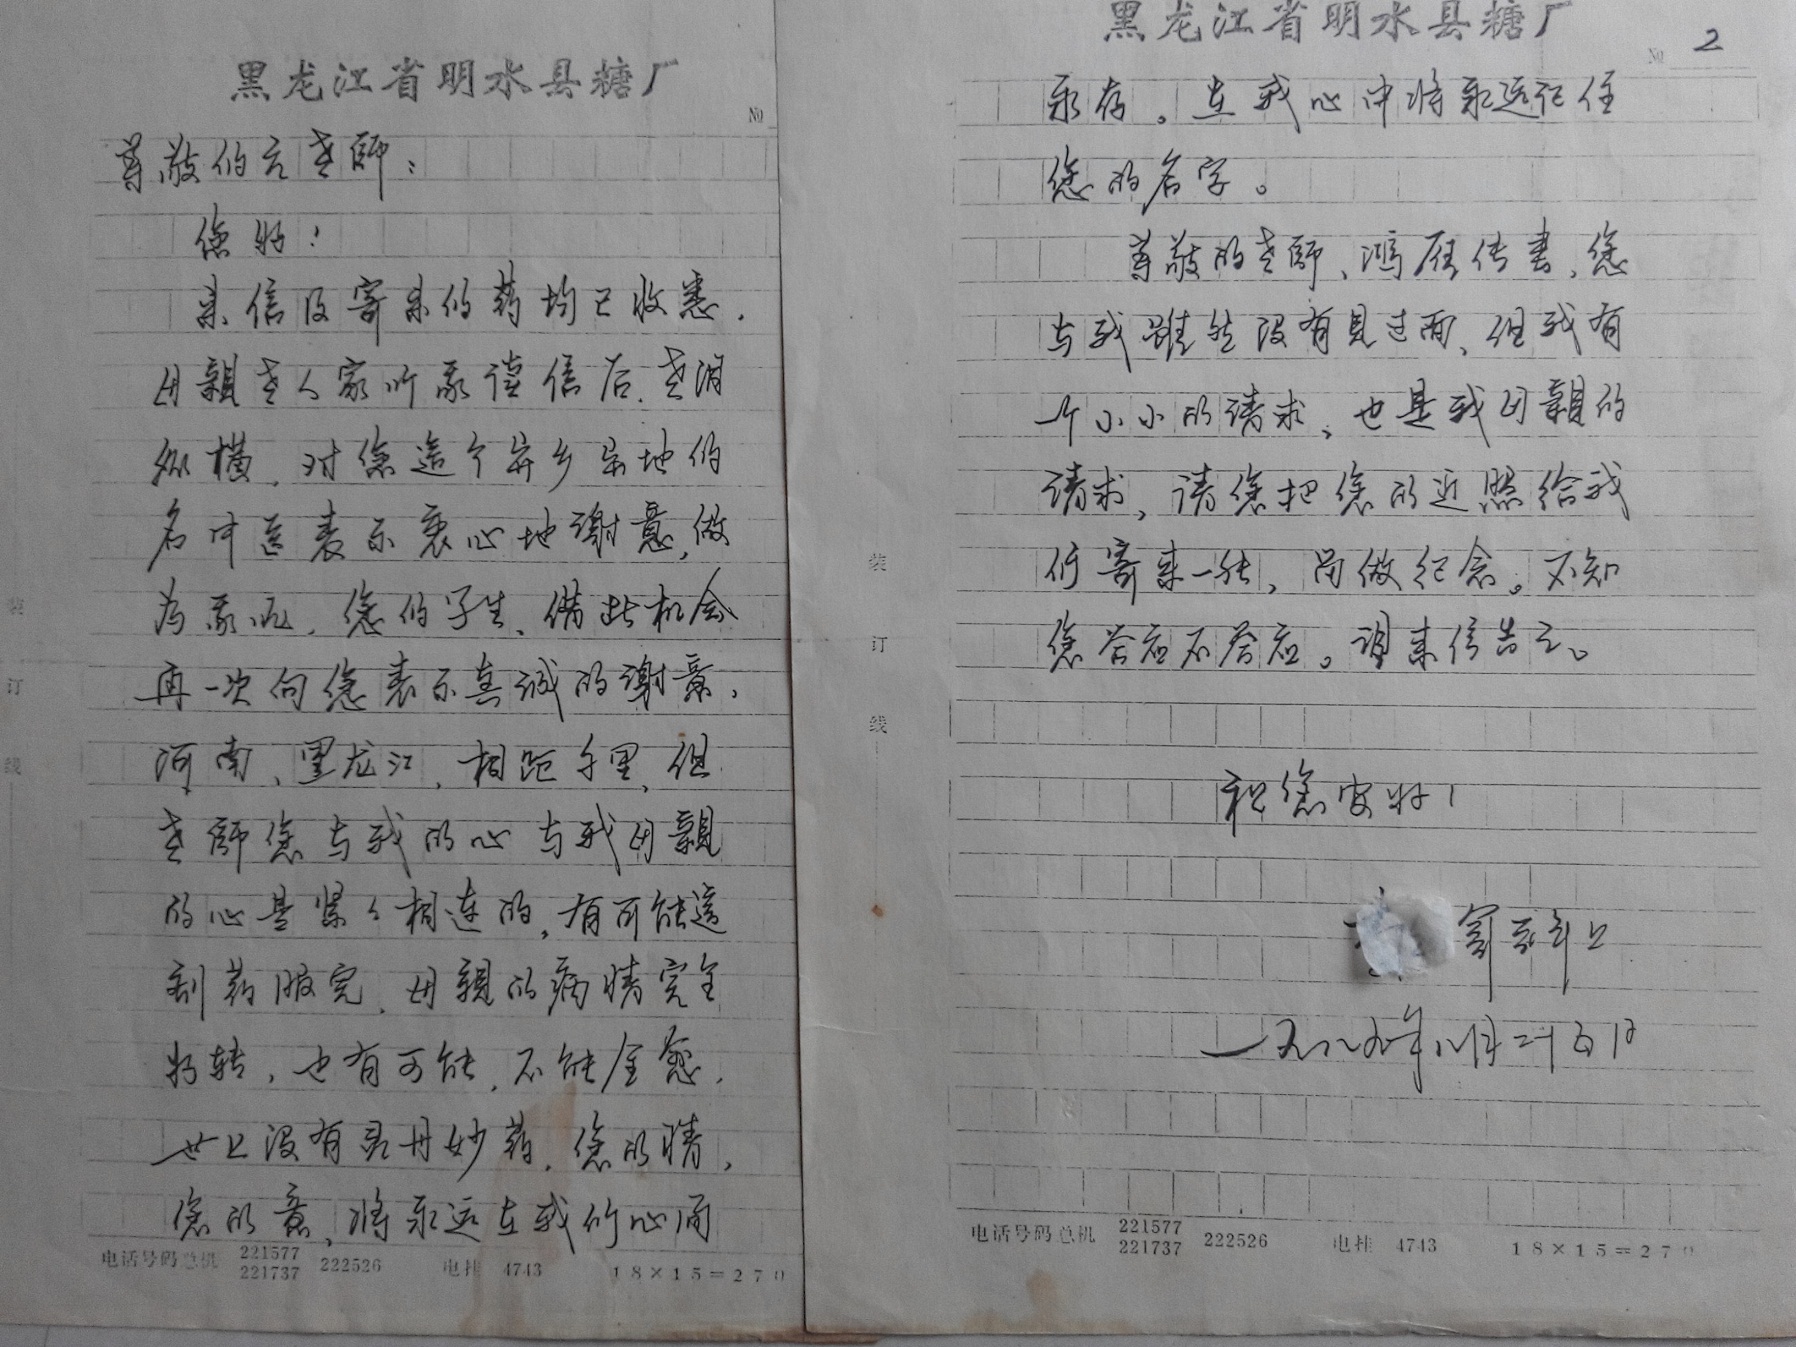 黑龙江省明水县糖厂
№
尊敬的亢老師：
您好！
来信及寄来的药均已收悉．
母親老人家听我读信后，老泪
纵横，对您这个异乡异地的
名中医表示衷心地谢意，做
为我呢，您的学生，借此机会
再一次向您表示真诚的谢意，
河南、黑龙江，相距千里，但
老師您与我的心与我母親
的心是紧々相连的，有可能这
剂药服完，母親的病情完全
好转，也有可能，不能全愈，
世上没有灵丹妙药，您的情，
您的意，将永远在我们心间
电话号码总机 221577 221737 222526 电挂 4743 18×15=270
装订线
黑龙江省明水县糖厂
№ 2
永存。在我心中将永远记住
您的名字。
尊敬的老師、鸿雁传書、您
与我雖然没有見过面、但我有
个小小的请求、也是我母親的
请求、请您把您的近照给我
们寄来一张、留做纪念。不知
您答应不答应。望来信告之。
祝您安好！
上
一九八九年八月二十五日
电话号码总机 221577 221737 222526 电挂 4743 18×15=270
装订线